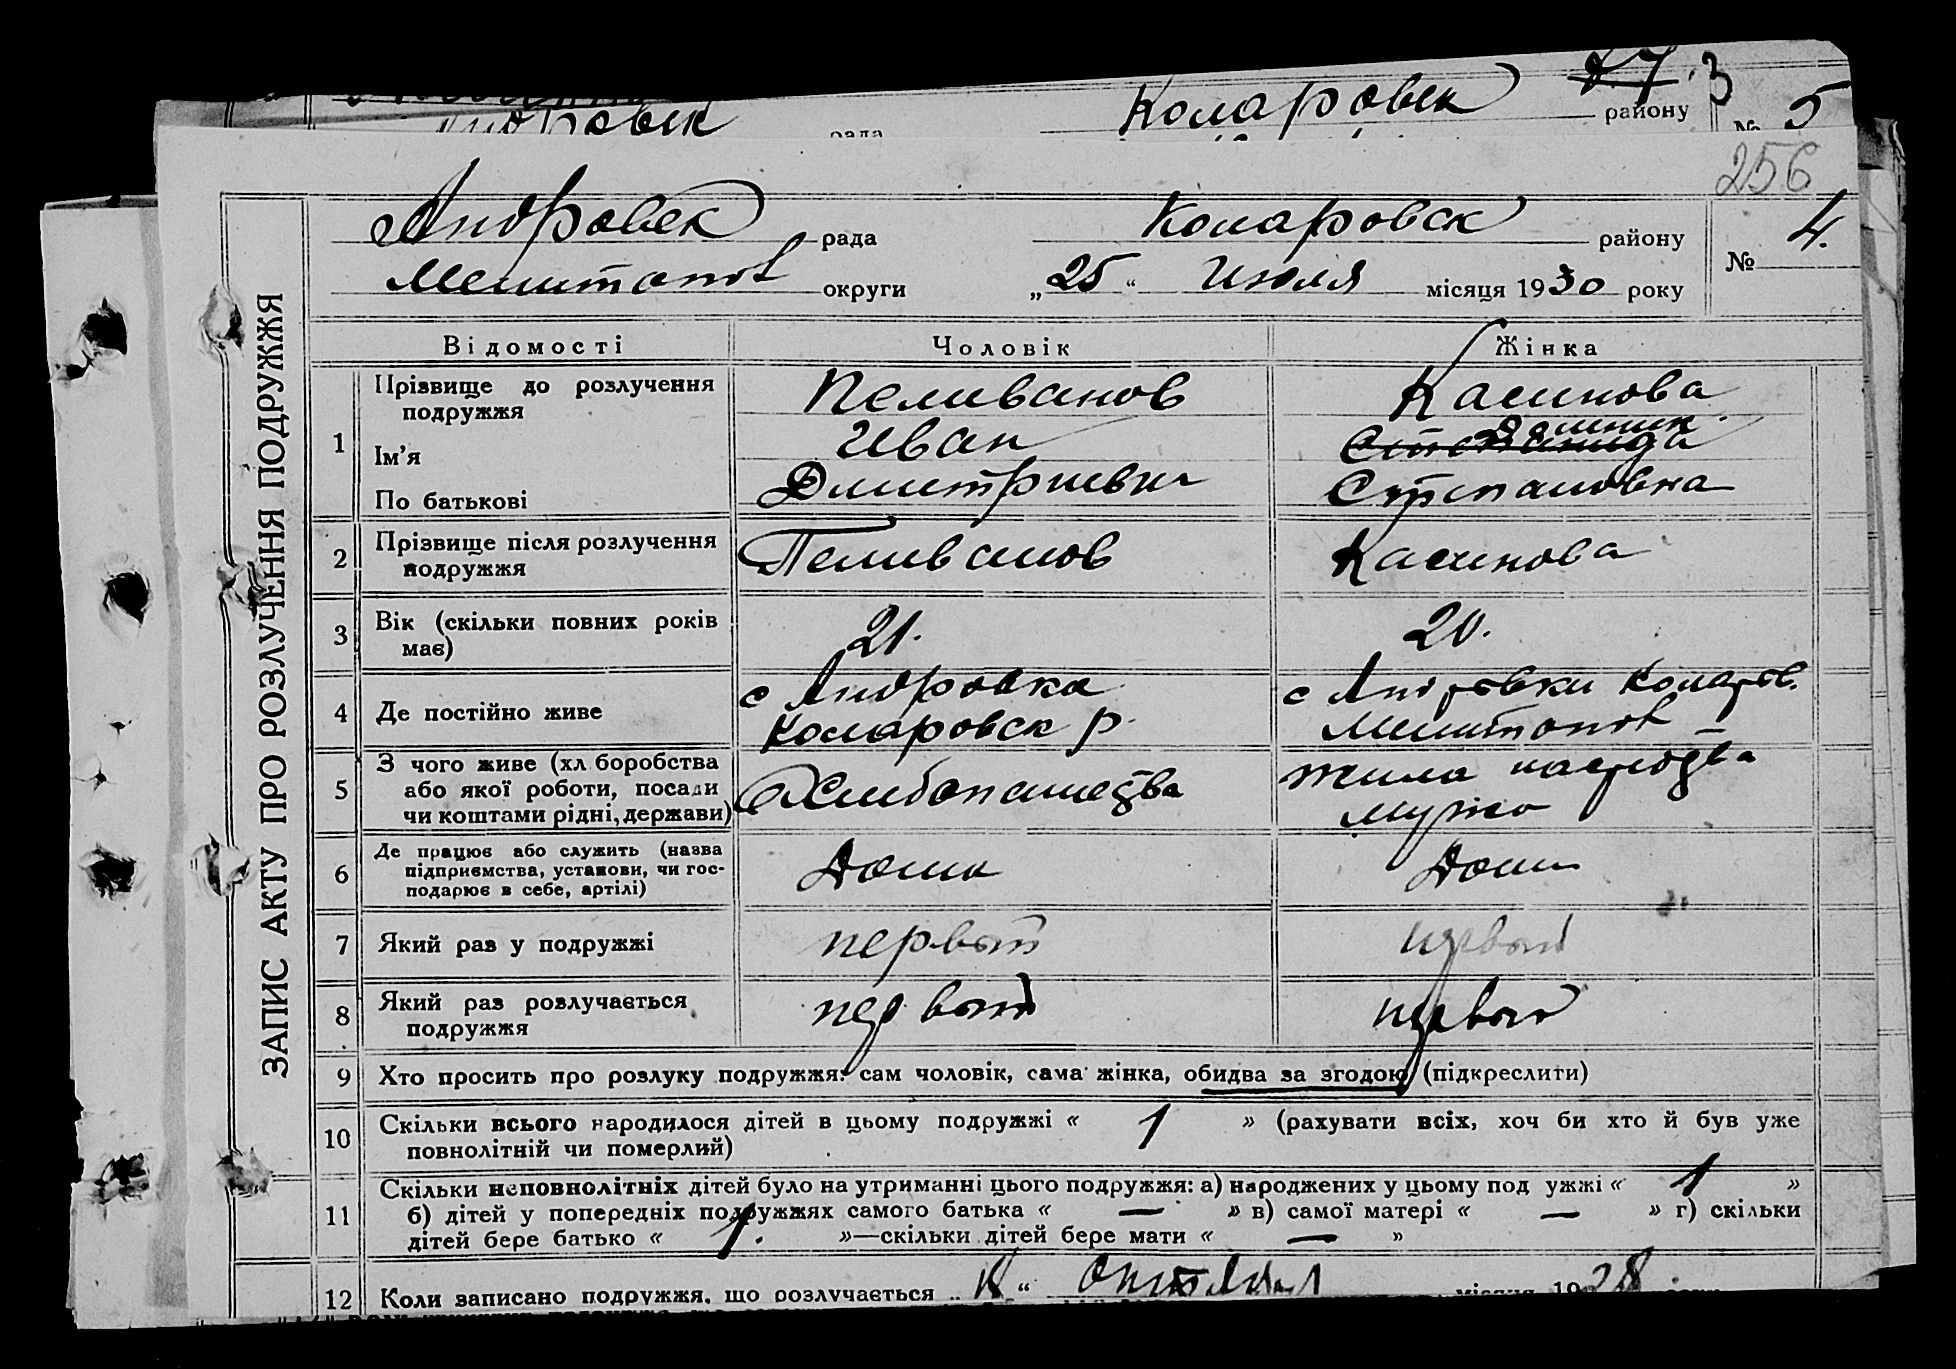 Комаровск району № 5
рада
256
Андровск рада Комаровск району № 4.
округи „25“ Июля місяця 1930 року
ЗАПИС АКТУ ПРО РОЗЛУЧЕННЯ ПОДРУЖЖЯ
Відомості Чоловік Жінка
1 Прізвище до розлучення подружжя Пеливанов Касинова
Ім’я Иван
По батькові Дмитриевич Степановна
2 Прізвище після розлучення подружжя Пеливанов Касинова
3 Вік (скільки повних років має) 21. 20.
4 Де постійно живе с Андровка с Андровки Комаров.
Комаровск р.
5 З чого живе (хл боробства або якої роботи, посади чи коштами рідні, держави) Хлибопашества Жила на
мужа
6 Де працює або служить (назва підприємства, установи, чи господарює в себе, артілі) Дома Дома
7 Який раз у подружжі первый первый
8 Який раз розлучається подружжя первый первый
9 Хто просить про розлуку подружжя: сам чоловік, сама жінка, обидва за згодою (підкреслити)
10 Скільки всього народилося дітей в цьому подружжі « 1 » (рахувати всіх, хоч би хто й був уже
повнолітній чи померлий)
11 Скільки неповнолітніх дітей було на утриманні цього подружжя: а) народжених у цьому под ужжі « 1 »
б) дітей у попередніх подружжях самого батька « — » в) самої матері « — » г) скільки
дітей бере батько « 1. »—скільки дітей бере мати « — »
12 Коли записано подружжя, що розлучається місяця 1928